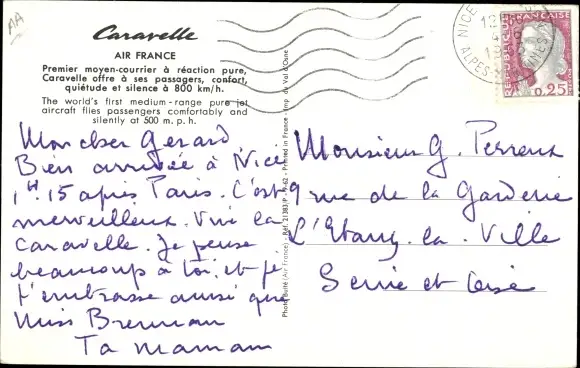 AA
Caravelle
AIR FRANCE
Premier moyen-courrier à réaction pure,
Caravelle offre à ses passagers, confort,
quiétude et silence à 800 km/h.
The world's first medium-range pure jet
aircraft flies passengers comfortably and
silently at 500 m.p.h.
Mon cher Gerard
Bien arrivée à Nice
1H.15 après Paris. C'est
merveilleux. Vive la
Caravelle. Je pense
beaucoup à toi, et je
t'embrasse ainsi que
Miss Brennan
Ta maman
Photo Buité (Air France) - Réf. 21383 P - 9-62 - Printed in France - Imp. du Val d'Osne
NICE
ALPES-
REPUBLIQUE FRANÇAISE
0,25
Monsieur G. Perreux
9 rue de la Garderie
L'Etang-la-Ville
Seine et Oise